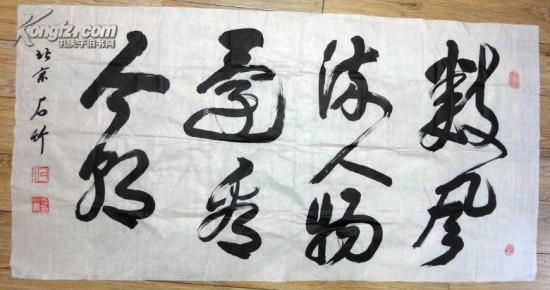 数风
流人物
还看
今朝
北京 石竹
Kongfz.com
孔夫子旧书网